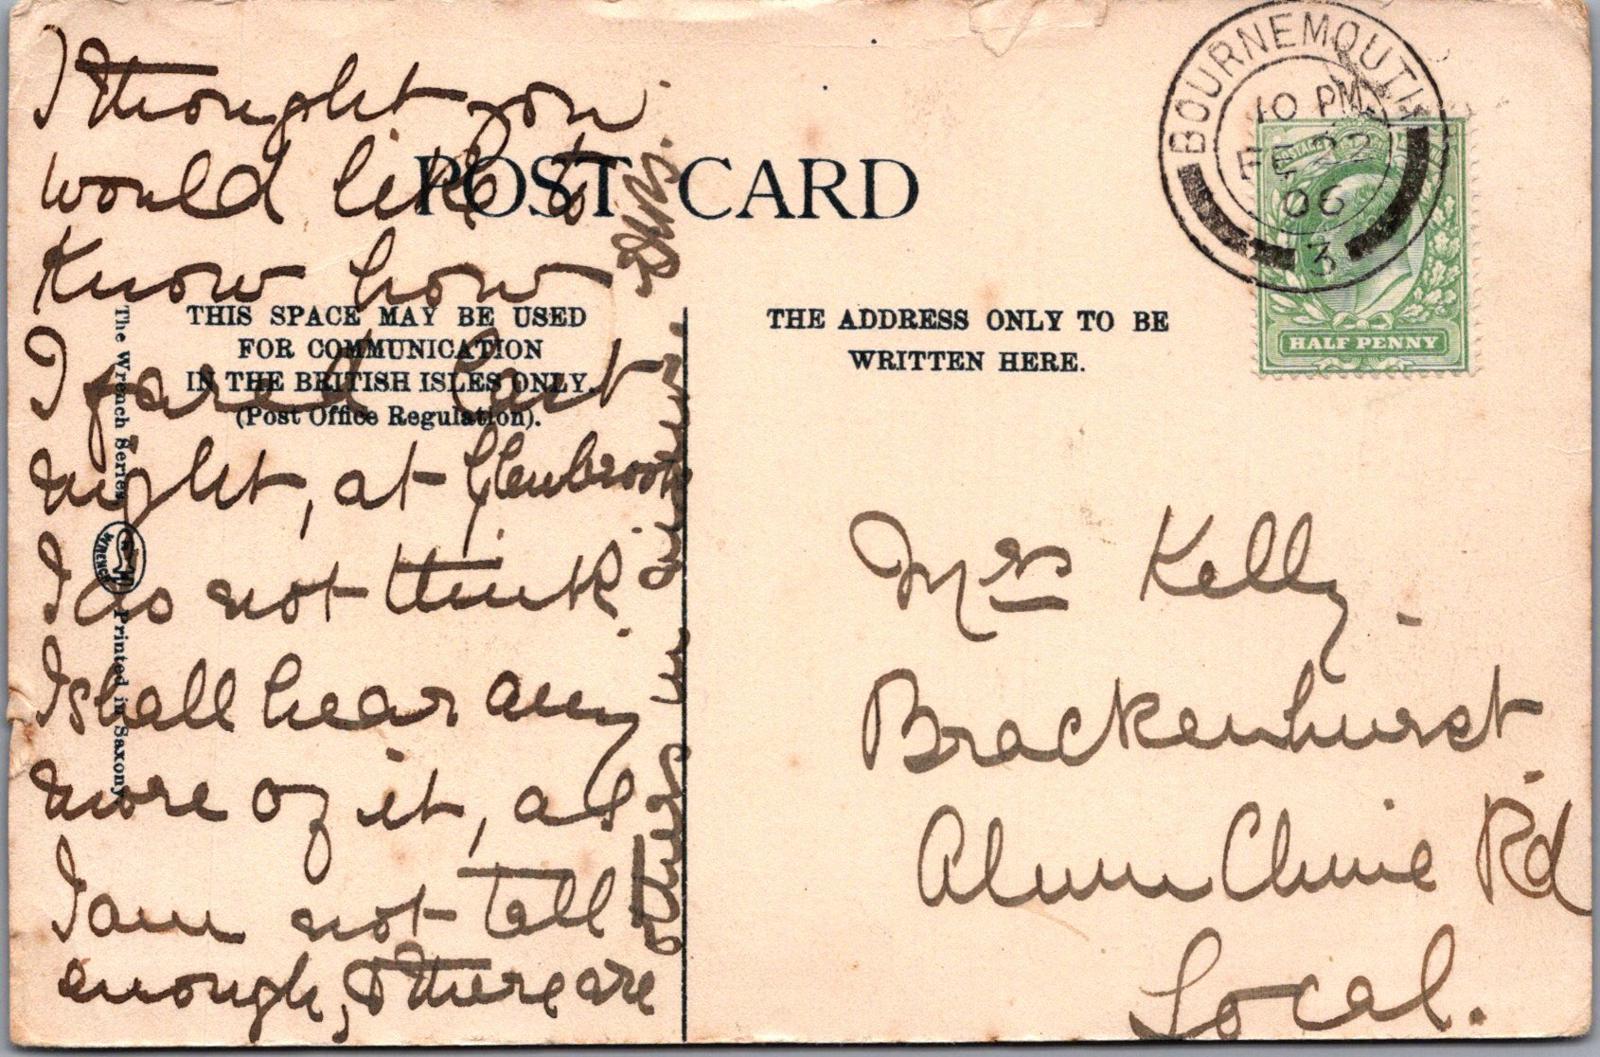 I thought you
would like to
know how
I fared last
night, at Glenbrook
I do not think
I shall hear any
more of it, as
I am not tall
enough, & there are
others in
POST CARD
THIS SPACE MAY BE USED
FOR COMMUNICATION
IN THE BRITISH ISLES ONLY.
(Post Office Regulation).
The Wrench Series
WRENCH
Printed in Saxony
THE ADDRESS ONLY TO BE
WRITTEN HERE.
BOURNEMOUTH
10 PM
FE 22
06
3
POSTAGE
HALF PENNY
Mrs Kelly.
Brackenhurst
Alum Chine Rd
Local.